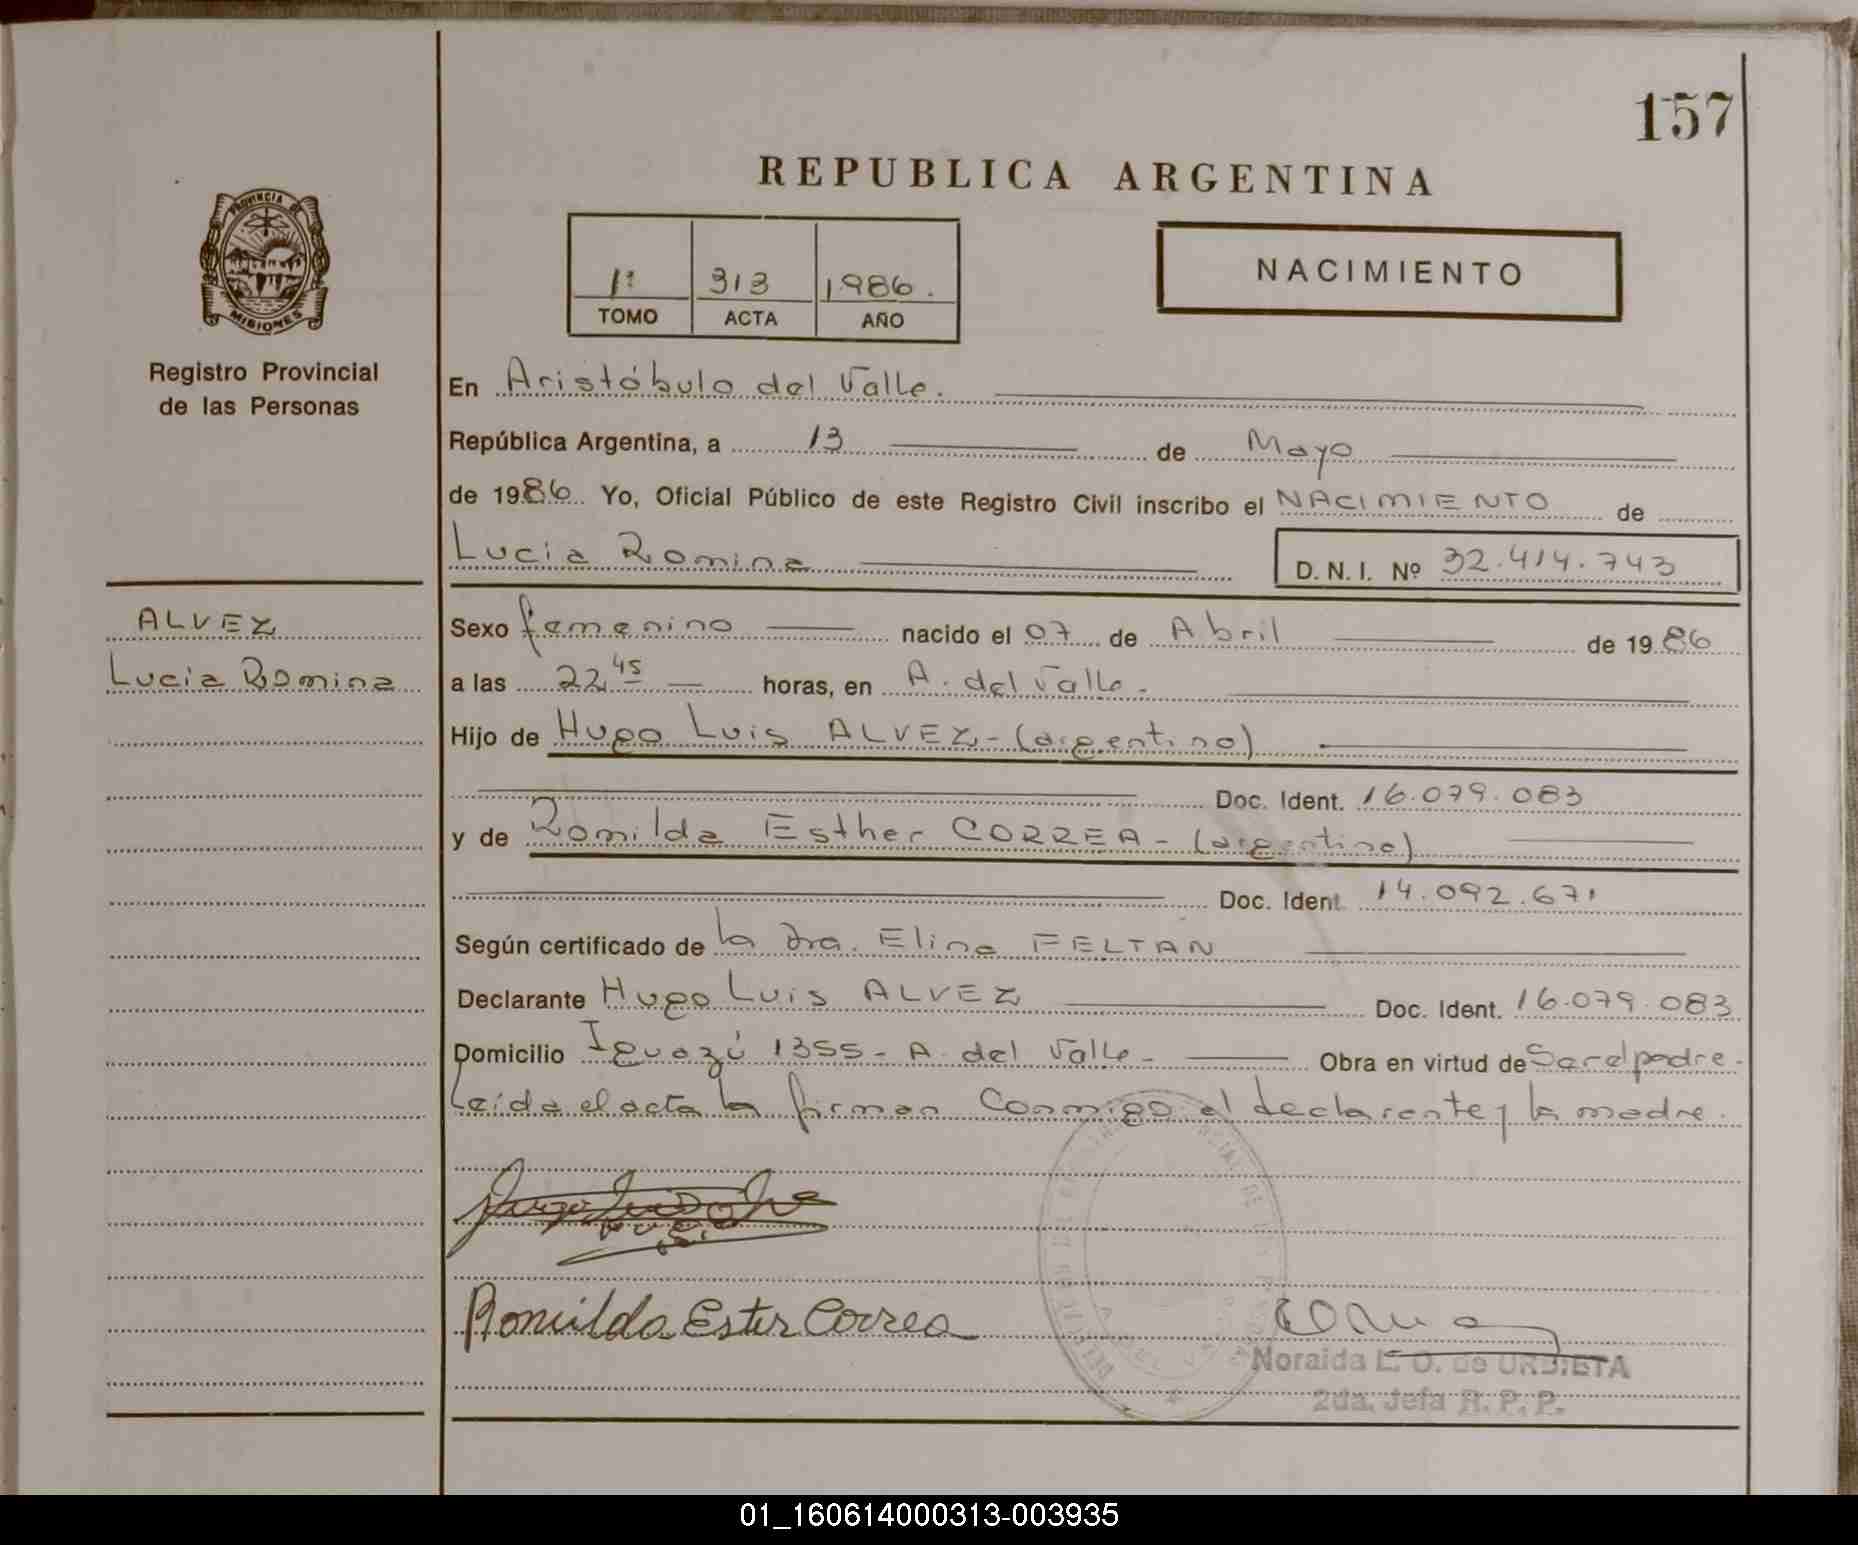 157
REPUBLICA ARGENTINA
PROVINCIA DE
MISIONES
Registro Provincial
de las Personas
1º 313 1986.
TOMO ACTA AÑO
NACIMIENTO
En Aristóbulo del Valle.
República Argentina, a 13 de Mayo
de 1986 Yo, Oficial Público de este Registro Civil inscribo el NACIMIENTO de
Lucia Romina D.N.I. Nº 32.414.743
ALVEZ
Lucia Romina
Sexo femenino nacido el 07 de Abril de 1986
a las 22 45 horas, en A. del Valle.
Hijo de Hugo Luis ALVEZ - (argentino)
Doc. Ident. 16.079.083
y de Romilda Esther CORREA - (argentina)
Doc. Ident. 14.092.671
Según certificado de la Dra. Elina FELTAN
Declarante Hugo Luis ALVEZ Doc. Ident. 16.079.083
Domicilio Iguazú 1355 - A. del Valle - Obra en virtud de Ser el padre.
Leída el acta la firman conmigo el declarante y la madre.
Romilda Ester Correa
Noraida L. O. de URBIETA
2da. Jefa R. P. P.
01_160614000313-003935